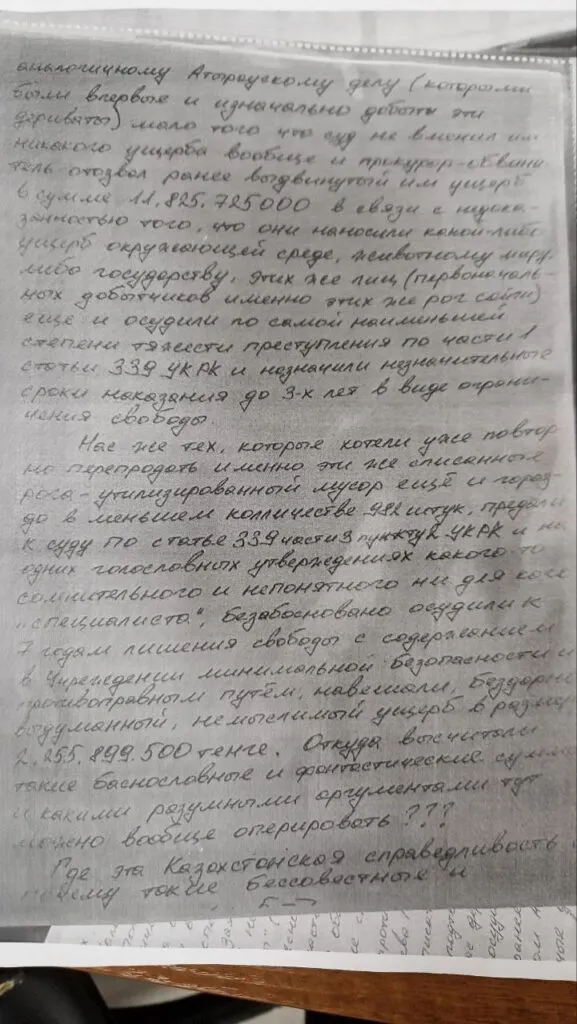 аналогичному Атыраускому делу (которыми
были впервые и изначально добыты эти
дериваты) мало того что суд не вменил им
никакого ущерба вообще и прокурор-обвини
тель отозвал ранее выдвинутый им ущерб
в сумме 11.825.725000 в связи с недока-
занностью того, что они наносили какой-либо
ущерб окружающей среде, животному миру
либо государству, этих же лиц (первоначаль-
ных добытчиков именно этих же рог сайги)
ещё и осудили по самой наименьшей
степени тяжести преступления по части 1
статьи 339 УКРК и назначили незначительные
сроки наказания до 3-х лет в виде ограни-
чения свободы.
Нас же тех, которые хотели уже повтор
но перепродать именно эти же списанные
рога-утилизированный мусор ещё и гораз-
до в меньшем колличестве 982 штук, предали
к суду по статье 339 части 3 пункту 2 УКРК и на
одних голословных утверждениях какого-то
сомнительного и непонятного ни для кого
"специалиста", безабосновано осудили к
7 годам лишения свободы с содержанием
в Учреждении минимальной безопасности и
противоправным путём, навешали, бездарно
выдуманный, немыслимый ущерб в размер
2.255.899.500 тенге. Откуда высчитали
такие баснословные и фантастические суммы
и какими разумными аргументами тут
можно вообще оперировать???
Где эта Казахстанская справедливость
почему такие бессовестные и